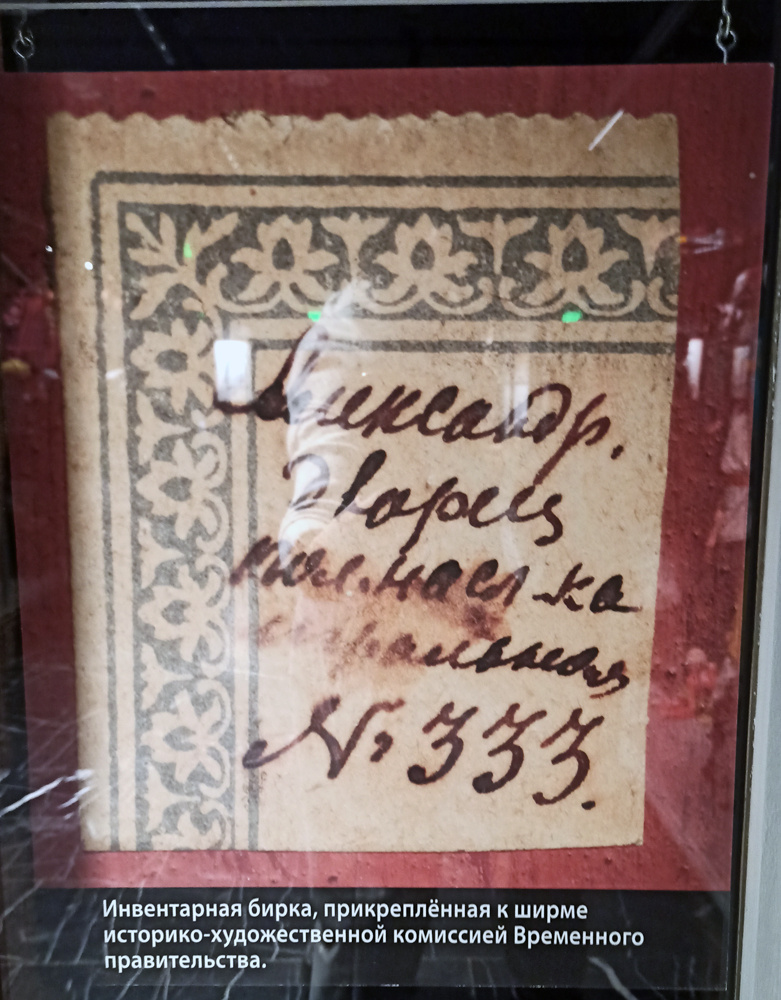 Александр.
Дворец
№ 333.
Инвентарная бирка, прикреплённая к ширме
историко-художественной комиссией Временного
правительства.